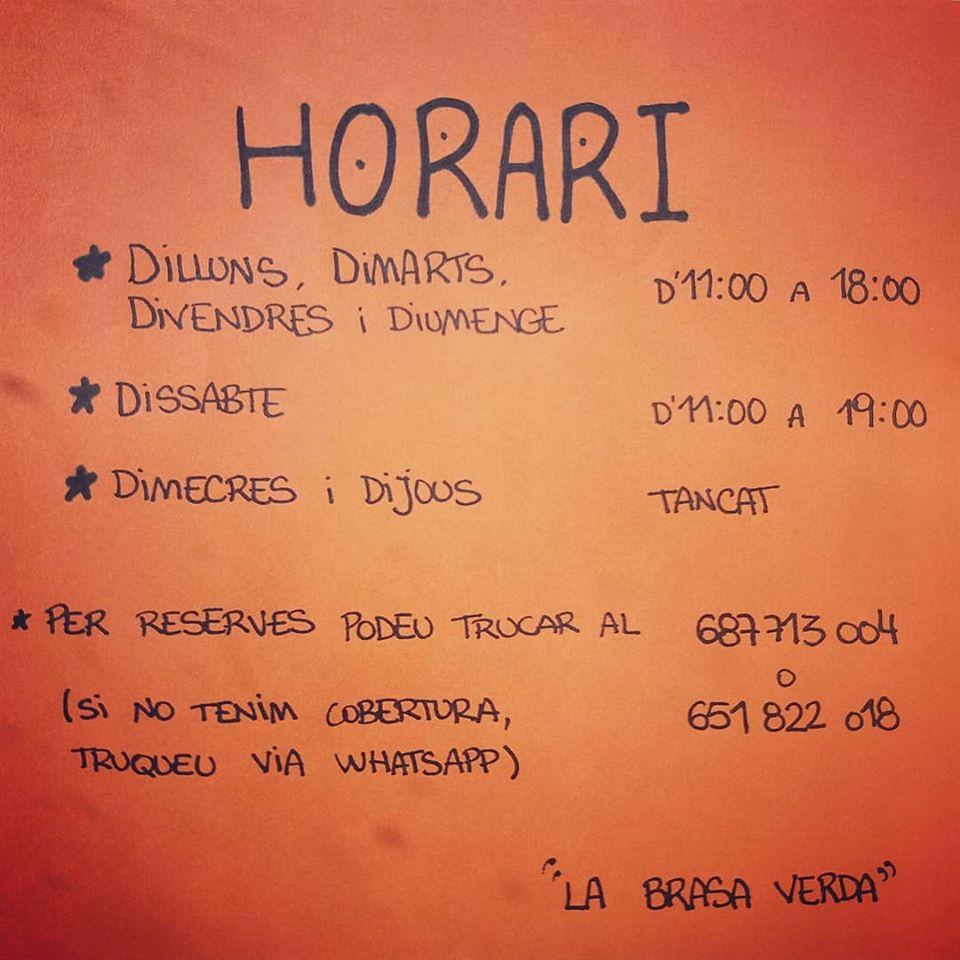 HORARI
★ DiLLUNS, DiMARTS, D'11:00 A 18:00
DiVENDRES i DiUMENGE
★ DiSSABTE D'11:00 A 19:00
★ DiMECRES i DiJOUS TANCAT
★ PER RESERVES PODEU TRUCAR AL 687713 004
o
(Si NO TENiM COBERTURA, 651 822 018
TRUQUEU ViA WHATSAPP)
"LA BRASA VERDA"